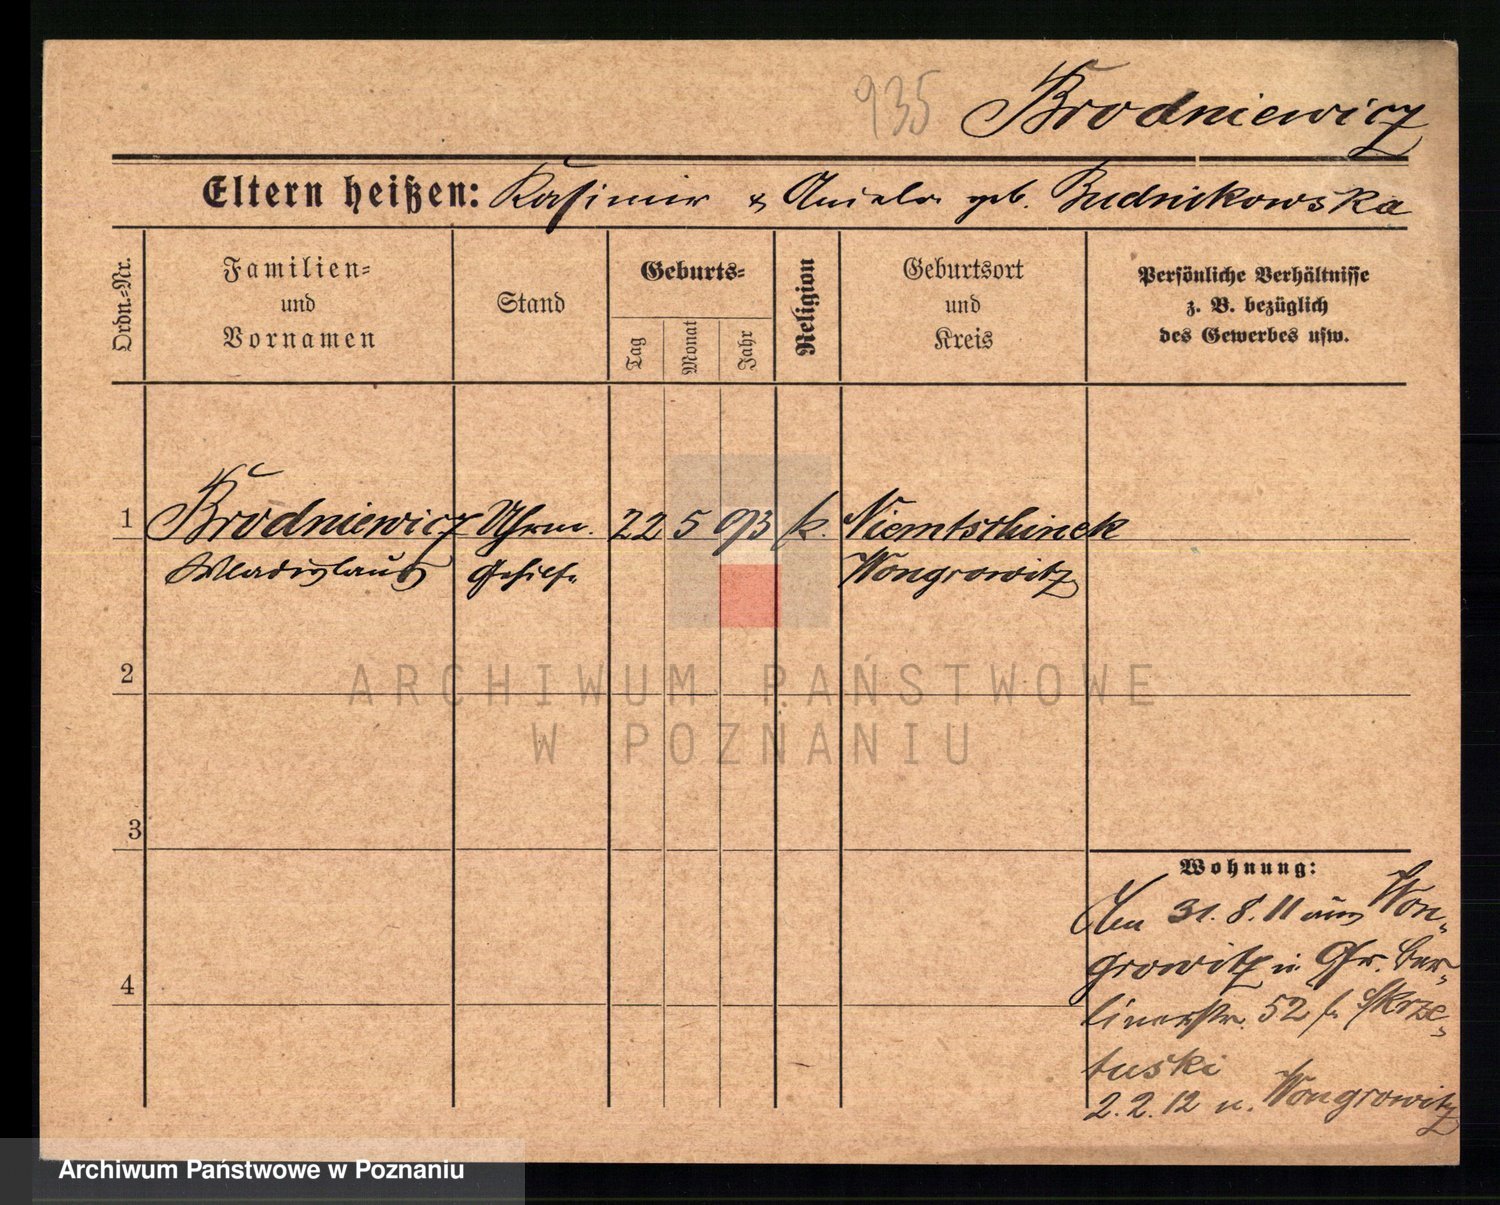 935 Brodniewicz
Eltern heißen: Kasimir & Aniela geb. Budnikowska
Ordn.-Nr.
Familien-
und
Vornamen
Stand
Geburts-
Tag
Monat
Jahr
Religion
Geburtsort
und
Kreis
Persönliche Verhältnisse
z. B. bezüglich
des Gewerbes usw.
1 Brodniewicz Uhrm. 22 5 93 k. Niemtschinek
Wladislaus Gehilf. Wongrowitz
2
ARCHIWUM PAŃSTWOWE
W POZNANIU
3
Wohnung:
Am 31. 8. 11 aus Won-
growitz n. Gr. Ber-
linerstr. 52 b. Skrze-
tuski
4
2. 2. 12 n. Wongrowitz
Archiwum Państwowe w Poznaniu